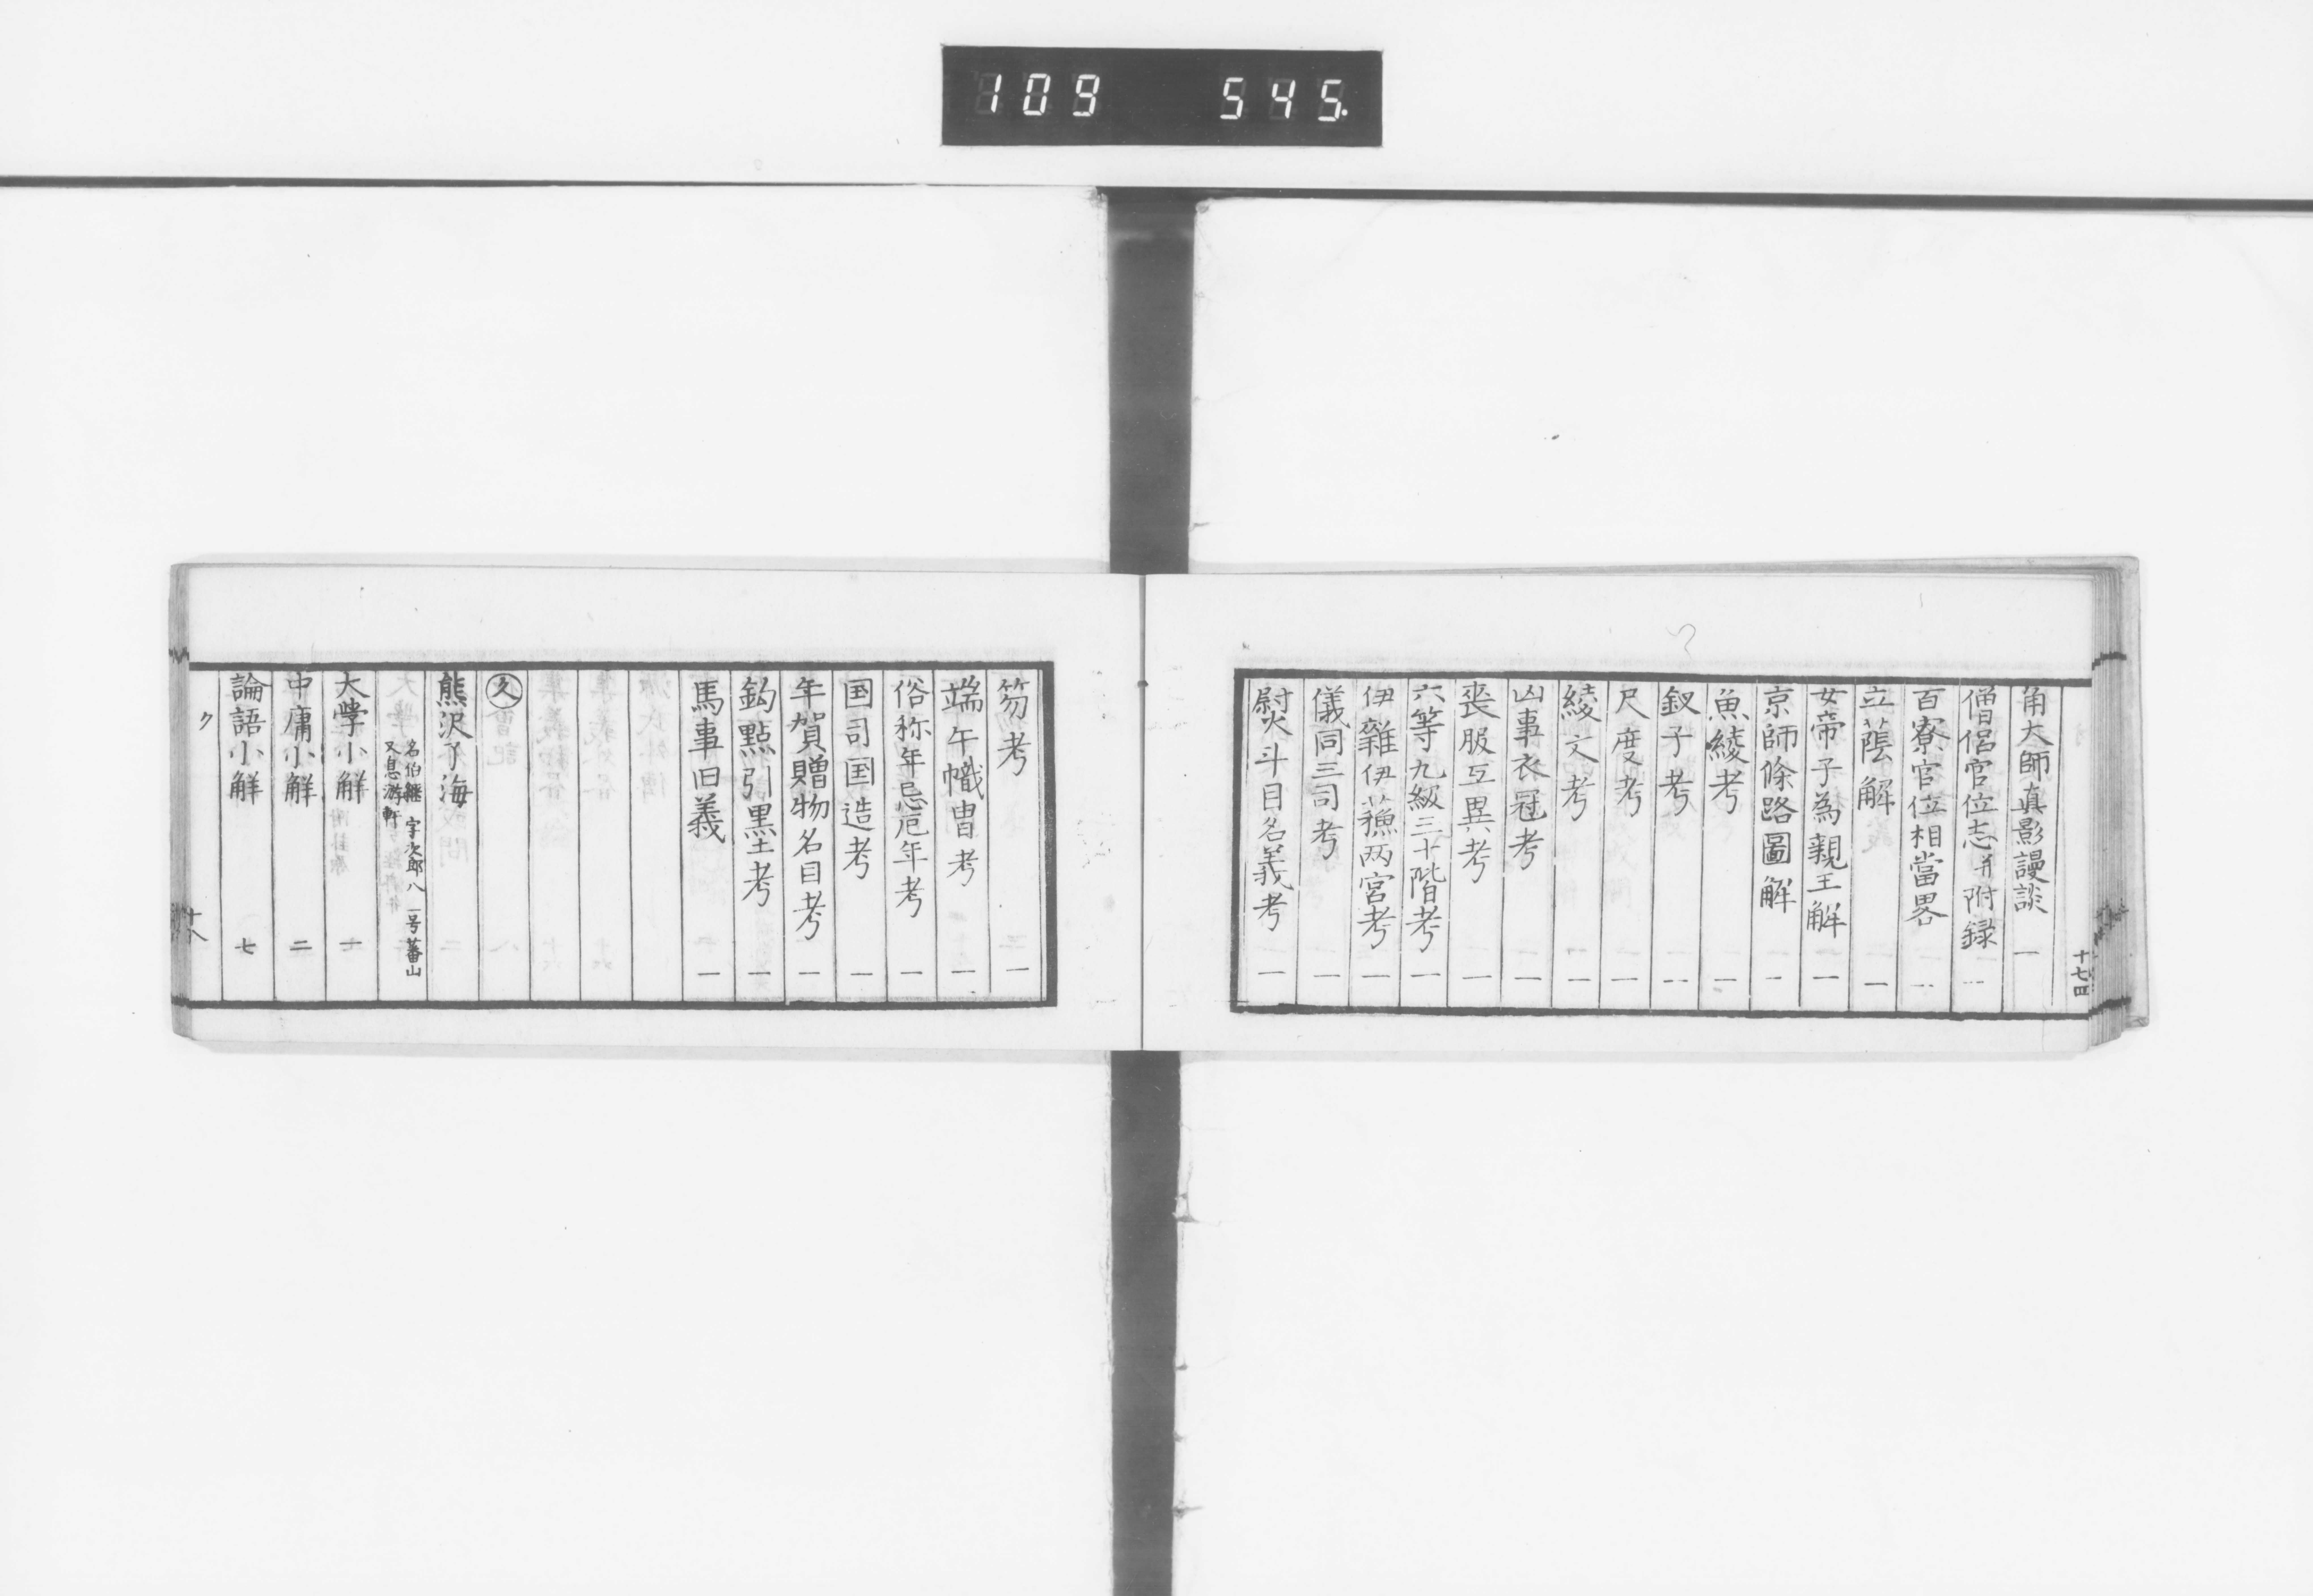 109 545.
十七四
角大師真影謾談 一
僧侶官位志并附録 一
百寮官位相當畧 一
立蔭解 一
女帝子為親王解 一
京師條路圖解 一
魚綾考 一
釵子考 一
尺度考 一
綾文考 一
凶事衣冠考 一
喪服互異考 一
六等九級三十階考 一
伊雜伊蘓两宮考 一
儀同三司考 一
熨斗目名義考 一
笏考 一
端午幟冑考 一
俗称年忌厄年考 一
国司国造考 一
年賀贈物名目考 一
鈎點引墨考 一
馬事旧義 一
久
熊沢了海
名伯継 字次郎八 一号蕃山
又息游軒
大學小解 一
中庸小解 二
論語小解 七
ク
十八